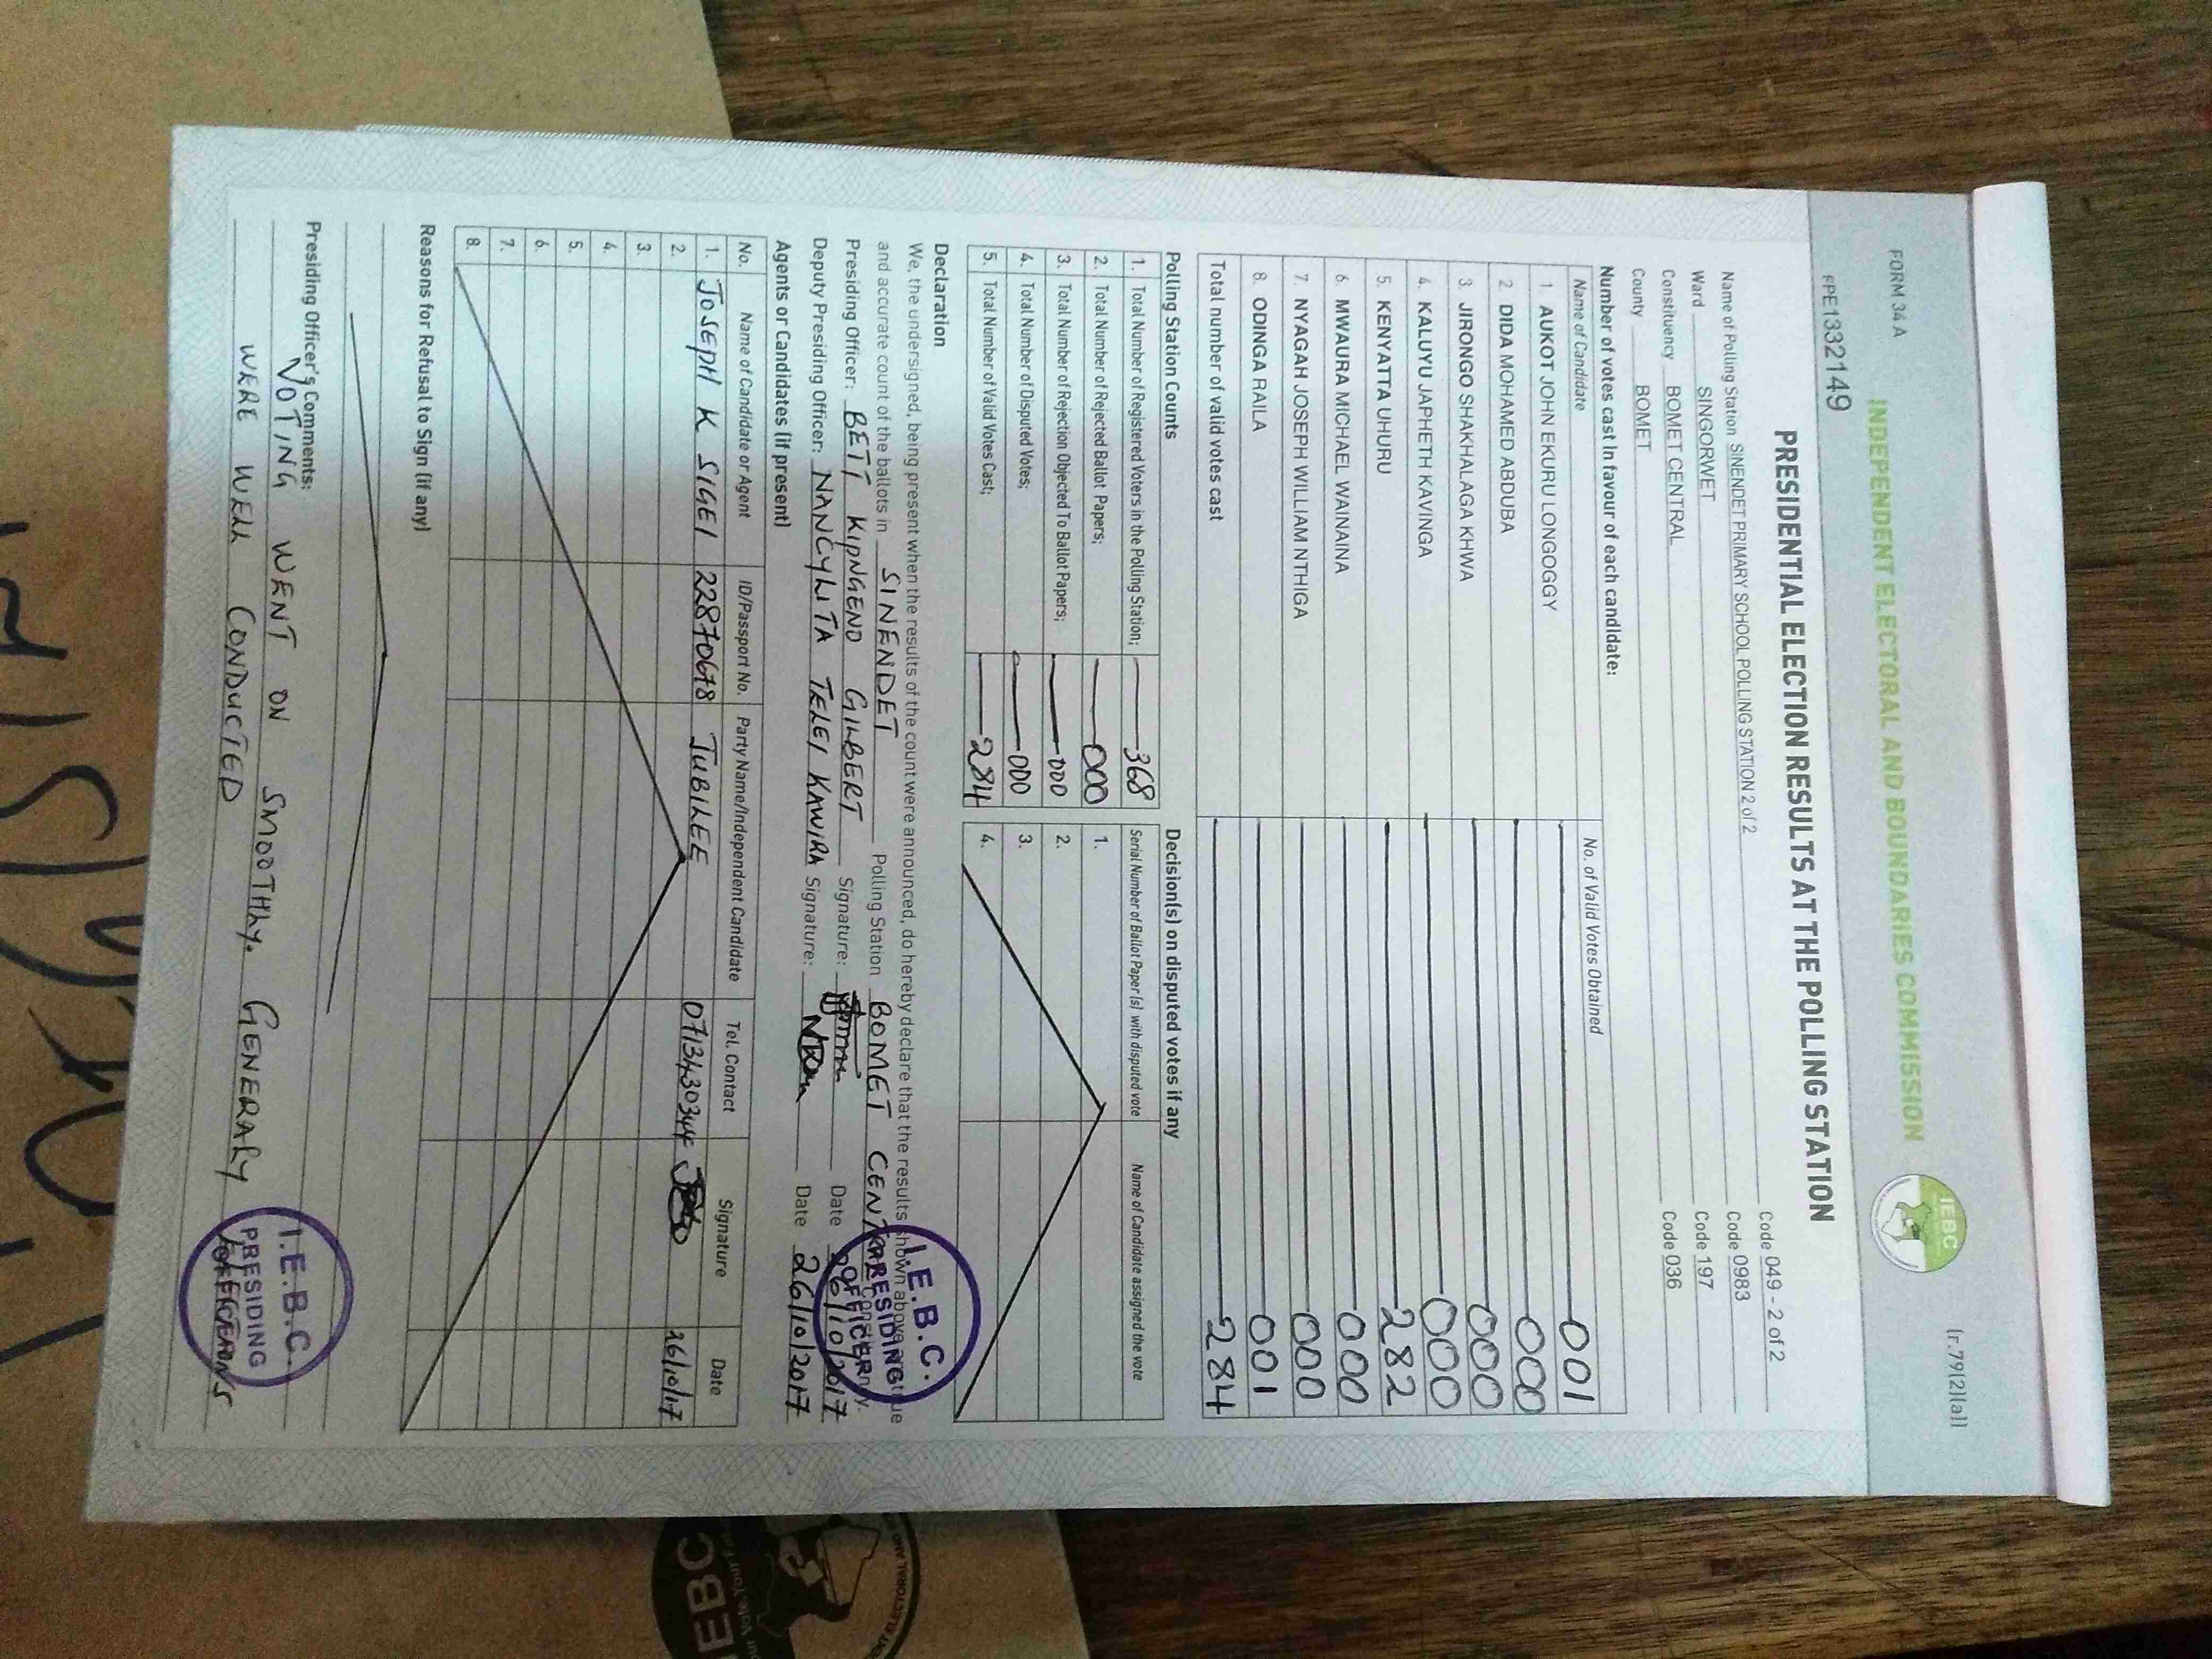 FORM 34 A
(r.79(2)(a))
INDEPENDENT ELECTORAL AND BOUNDARIES COMMISSION
IEBC
PPE1332149
PRESIDENTIAL ELECTION RESULTS AT THE POLLING STATION
Name of Polling Station SINENDET PRIMARY SCHOOL POLLING STATION 2 of 2 Code 049 - 2 of 2
Ward SINGORWET Code 0983
Constituency BOMET CENTRAL Code 197
County BOMET Code 036
Number of votes cast in favour of each candidate:
Name of Candidate No. of Valid Votes Obtained
1. AUKOT JOHN EKURU LONGOGGY 001
2. DIDA MOHAMED ABDUBA 000
3. JIRONGO SHAKHALAGA KHWA 000
4. KALUYU JAPHETH KAVINGA 000
5. KENYATTA UHURU 282
6. MWAURA MICHAEL WAINAINA 000
7. NYAGAH JOSEPH WILLIAM NTHIGA 000
8. ODINGA RAILA 001
Total number of valid votes cast 284
Polling Station Counts
1. Total Number of Registered Voters in the Polling Station; 368
2. Total Number of Rejected Ballot Papers; 000
3. Total Number of Rejection Objected To Ballot Papers; 000
4. Total Number of Disputed Votes; 000
5. Total Number of Valid Votes Cast; 284
Decision(s) on disputed votes if any
Serial Number of Ballot Paper(s) with disputed vote Name of Candidate assigned the vote
1.
2.
3.
4.
Declaration
We, the undersigned, being present when the results of the count were announced, do hereby declare that the results shown above are true
and accurate count of the ballots in SINENDET Polling Station BOMET CENTRAL Constituency.
Presiding Officer: BETT KIPNGENO GILBERT Signature: Date 26/10/2017
Deputy Presiding Officer: NANCYLITA TELEI KAWIRA Signature: Date 26/10/2017
I.E.B.C.
PRESIDING
OFFICER
Agents or Candidates (if present)
No. Name of Candidate or Agent ID/Passport No. Party Name/Independent Candidate Tel. Contact Signature Date
1. JOSEPH K SIGEI 22870678 JUBILEE 0713430344 26/10/17
2.
3.
4.
5.
6.
7.
8.
Reasons for Refusal to Sign (if any)
Presiding Officer's Comments:
VOTING WENT ON SMOOTHLY. GENERALY
WERE WELL CONDUCTED
I.E.B.C.
PRESIDING
IEBC